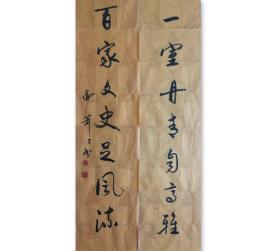 一室丹青自高雅
百家文史足风流